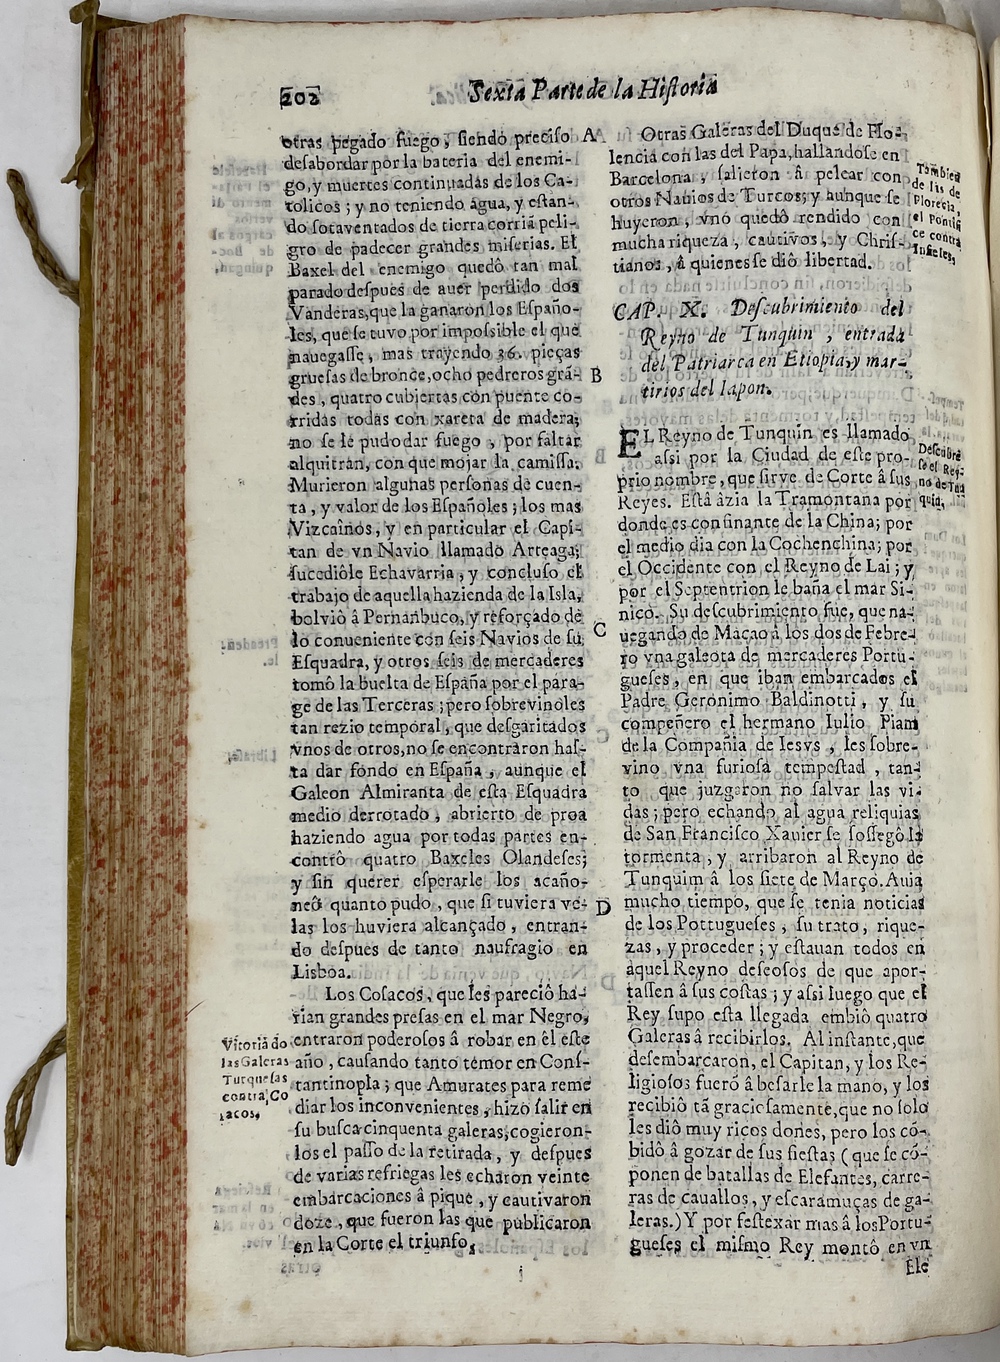 202
Sexta Parte de la Historia
otras pegado fuego, siendo preciso
desabordar por la bateria del enemi-
go, y muertes continuadas de los Ca-
tolicos; y no teniendo agua, y estan-
do sotaventados de tierra corriã peli-
gro de padecer grandes miserias. El
Baxel del enemigo quedô tan mal
parado despues de auer perdido dos
Vanderas, que la ganaron los Españo-
les, que se tuvo por impossible el que
nauegasse, mas trayendo 36. pieças
gruesas de bronce, ocho pedreros grã-
des, quatro cubiertas con puente co-
rridas todas con xareta de madera;
no se le pudo dar fuego, por faltar
alquitran, con que mojar la camissa.
Murieron algunas personas de cuen-
ta, y valor de los Españoles; los mas
Vizcaînos, y en particular el Capi-
tan de vn Navio llamado Arteaga;
sucediôle Echavarria, y concluso el
trabajo de aquella hazienda de la Isla,
bolviô â Pernanbuco, y reforçado de
lo conueniente con seis Navios de su
Esquadra, y otros seis de mercaderes
tomô la buelta de España por el para-
ge de las Terceras; pero sobrevinoles
tan rezio temporal, que desgaritados
vnos de otros, no se encontraron has-
ta dar fondo en España, aunque el
Galeon Almiranta de esta Esquadra
medio derrotado, abierto de proa
haziendo agua por todas partes en-
contrò quatro Baxeles Olandeses;
y sin querer esperarle los acaño-
neô quanto pudo, que si tuviera ve-
las los huviera alcançado, entran-
do despues de tanto naufragio en
Lisboa.
Los Cosacos, que les pareciô ha-
rian grandes presas en el mar Negro,
entraron poderosos â robar en èl este
año, causando tanto temor en Cons-
tantinopla; que Amurates para reme
diar los inconvenientes, hizo salir en
su busca cinquenta galeras, cogieron-
los el passo de la retirada, y despues
de varias refriegas les echaron veinte
embarcaciones â pique, y cautivaron
doze, que fueron las que publicaron
en la Corte el triunfo,
Vitoria do
las Galeras
Turquesas
contra Co
sacos.
A
B
C
D
Otras Galeras del Duque de Flo-
lencia con las del Papa, hallandose en
Barcelona, salieron â pelear con
otros Nabios de Turcos; y aunque se
huyeron, vnó quedô rendido con
mucha riqueza, cautivos, y Chris-
tianos, â quienes se diô libertad.
Tambien
de las de
Florecia,
el Pontifi
ce contra
Infieles,
CAP. X. Descubrimiento del
Reyno de Tunquin, entrada
del Patriarca en Etiopia, y mar-
tirios del Iapon.
EL Reyno de Tunquin es llamado
assi por la Ciudad de este pro-
prio nombre, que sirve de Corte â sus
Reyes. Estâ âzia la Tramontana por
donde es confinante de la China; por
el medio dia con la Cochenchina; por
el Occidente con el Reyno de Lai; y
por el Septentrion le baña el mar Si-
nico. Su descubrimiento fue, que na-
uegando de Macao â los dos de Febre-
ro vna galeota de mercaderes Portu-
gueses, en que iban embarcados el
Padre Geronimo Baldinotti, y su
compeñero el hermano Iulio Piam
de la Compañia de Iesvs, les sobre-
vino vna furiosa tempestad, tan-
to que juzgaron no salvar las vi-
das; pero echando al agua reliquias
de San Francisco Xauier se sossegô la
tormenta, y arribaron al Reyno de
Tunquim â los siete de Março. Auia
mucho tiempo, que se tenia noticias
de los Pottugueses, su trato, rique-
zas, y proceder; y estauan todos en
aquel Reyno deseosos de que apor-
tassen â sus costas; y assi luego que el
Rey supo esta llegada embiô quatro
Galeras â recibirlos. Al instante, que
desembarcaron, el Capitan, y los Re-
ligiosos fuerô â besarle la mano, y los
recibiô tã graciosamente, que no solo
les diô muy ricos dones, pero los cô-
bidô â gozar de sus fiestas (que se cô-
ponen de batallas de Elefantes, carre-
ras de cauallos, y escaramuças de ga-
leras.) Y por festexar mas â los Portu-
gueses el mismo Rey montô en vn
Ele
Descubre
se el Rey-
no de Tun
quin,